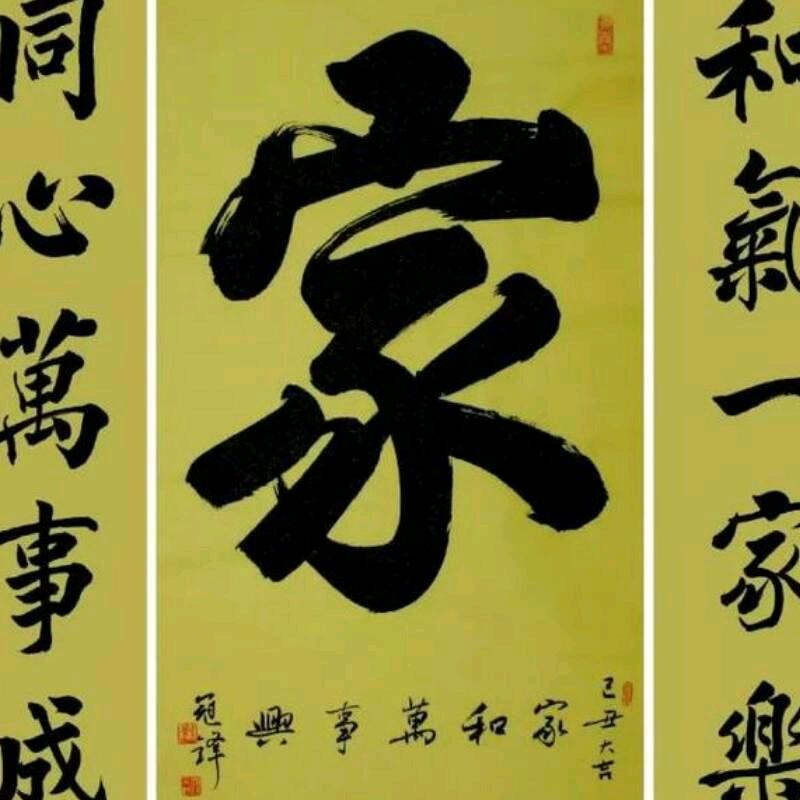 和氣一家樂
家
己丑大吉
家和萬事興
冠
同心萬事成